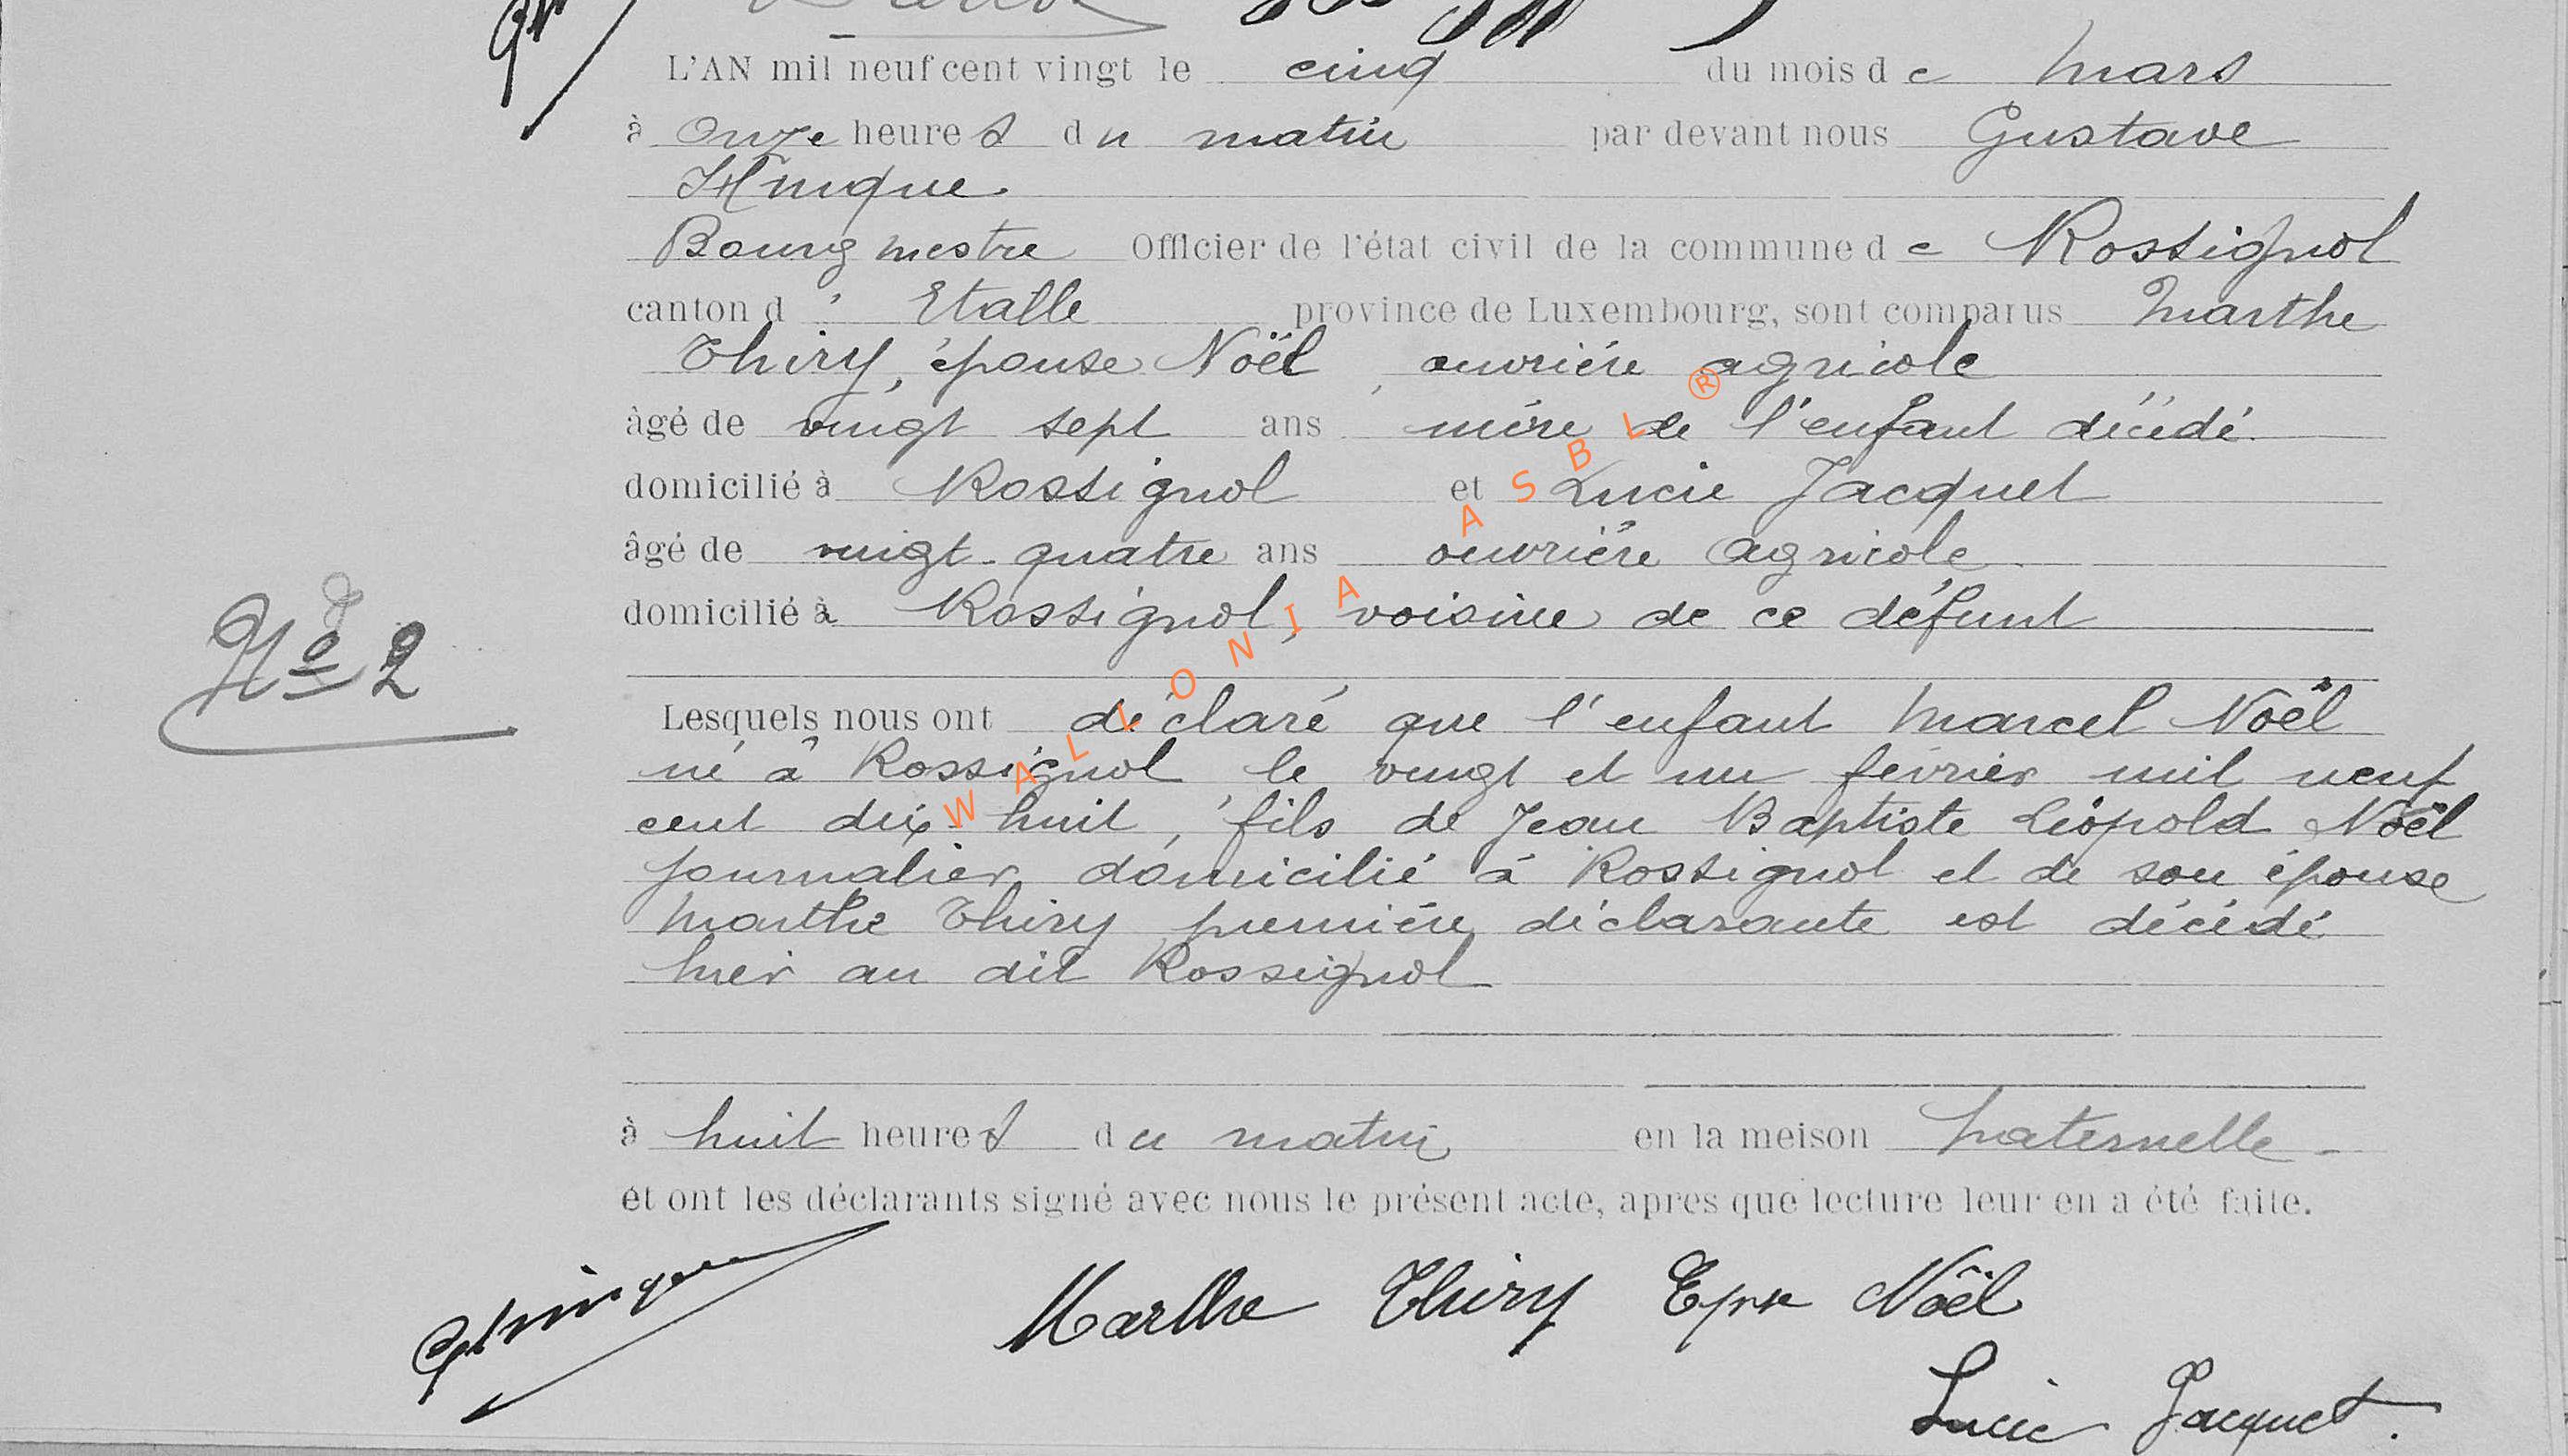 L'AN mil neuf cent vingt le cinq du mois de Mars
à onze heures du matin par devant nous Gustave
Hinque
Bourgmestre Officier de l'état civil de la commune de Rossignol
canton d' Etalle province de Luxembourg, sont comparus Marthe
Thiry, épouse Noël, ouvrière agricole
âgé de vingt sept ans mère de l'enfant décédé
domicilié à Rossignol et Lucie Jacquet
âgé de vingt-quatre ans ouvrière agricole
domicilié à Rossignol, voisine de ce défunt
Nº 2
Lesquels nous ont déclaré que l'enfant Marcel Noël
né à Rossignol le vingt et un février mil neuf
cent dix-huit, fils de Jean Baptiste Léopold Noël
journalier domicilié à Rossignol et de son épouse
Marthe Thiry première déclarante est décédé
hier au dit Rossignol
à huit heures du matin en la meison maternelle -
et ont les déclarants signé avec nous le présent acte, apres que lecture leur en a été faite.
GHinque
Marthe Thiry Epse Noël
Lucie Jacquet.
WALLONIA ASBL ®